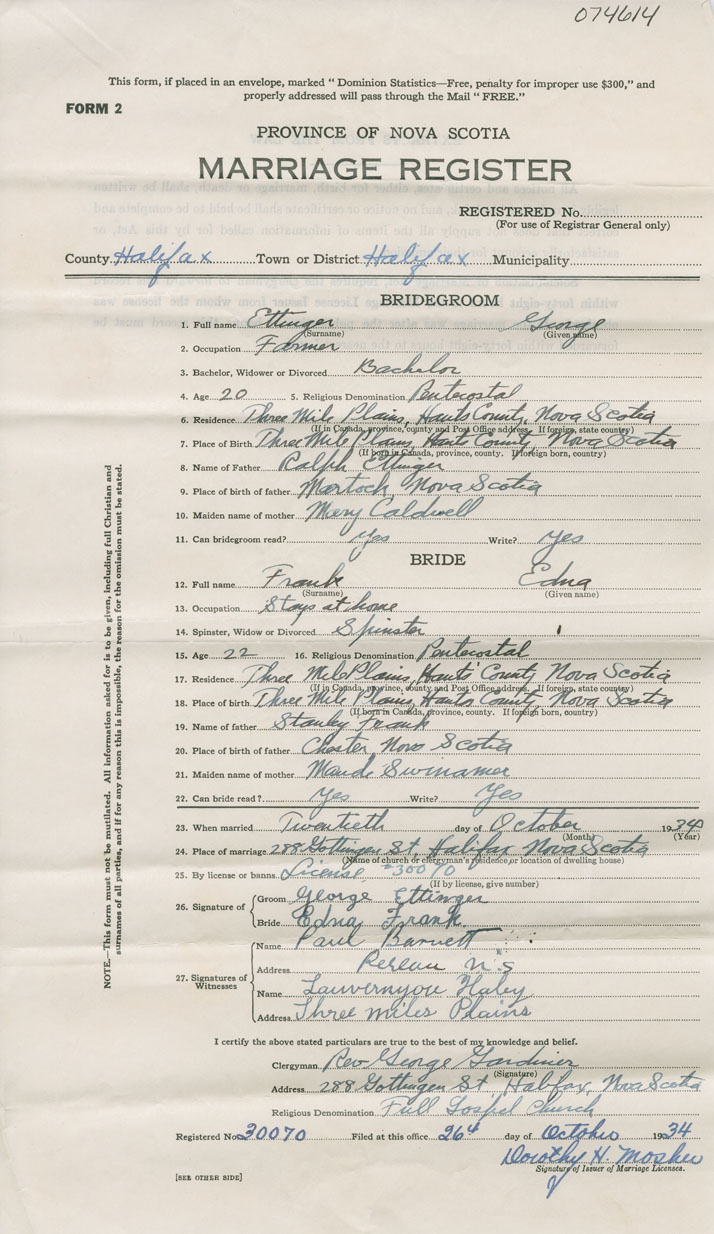 074614
This form, if placed in an envelope, marked "Dominion Statistics—Free, penalty for improper use $300," and
properly addressed will pass through the Mail "FREE."
FORM 2
PROVINCE OF NOVA SCOTIA
MARRIAGE REGISTER
REGISTERED No.
(For use of Registrar General only)
County Halifax Town or District Halifax Municipality
BRIDEGROOM
1. Full name Ettinger George
(Surname) (Given name)
2. Occupation Farmer
3. Bachelor, Widower or Divorced Bachelor
4. Age 20 5. Religious Denomination Pentecostal
6. Residence Three Mile Plains, Hants County, Nova Scotia
(If in Canada, province, county and Post Office address. If foreign, state country)
7. Place of Birth Three Mile Plains, Hants County, Nova Scotia
(If born in Canada, province, county. If foreign born, country)
8. Name of Father Ralph Ettinger
9. Place of birth of father Martock, Nova Scotia
10. Maiden name of mother Mary Caldwell
11. Can bridegroom read? Yes Write? Yes
BRIDE
12. Full name Frank Edna
(Surname) (Given name)
13. Occupation Stays at home
14. Spinster, Widow or Divorced Spinster
15. Age 22 16. Religious Denomination Pentecostal
17. Residence Three Mile Plains, Hants County Nova Scotia
(If in Canada, province, county and Post Office address. If foreign, state country)
18. Place of birth Three Mile Plains, Hants County Nova Scotia
(If born in Canada, province, county. If foreign born, country)
19. Name of father Stanley Frank
20. Place of birth of father Chester, Nova Scotia
21. Maiden name of mother Maude Swinamer
22. Can bride read? Yes Write? Yes
23. When married Twentieth day of October 1934
(Month) (Year)
24. Place of marriage 288 Gottingen St. Halifax Nova Scotia
(Name of church or clergyman's residence, or location of dwelling house)
25. By license or banns License #30070
(If by license, give number)
26. Signature of
Groom George Ettinger
Bride Edna Frank
27. Signatures of Witnesses
Name Paul Barnett
Address Pereau N.S
Name Lauvernyou Haley
Address Three miles Plains
I certify the above stated particulars are true to the best of my knowledge and belief.
Clergyman Rev George Gardiner
(Signature)
Address 288 Gottingen St, Halifax, Nova Scotia
Religious Denomination Full Gospel Church
Registered No. 30070 Filed at this office 26th day of October 1934
Dorothy H. Mosher
Signature of Issuer of Marriage Licenses.
[SEE OTHER SIDE]
NOTE.—This form must not be mutilated. All information asked for is to be given, including full Christian and
surnames of all parties, and if for any reason this is impossible, the reason for the omission must be stated.